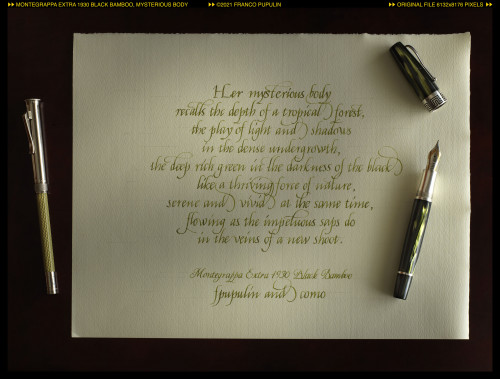 MONTEGRAPPA EXTRA 1930 BLACK BAMBOO, MYSTERIOUS BODY
©2021 FRANCO PUPULIN
ORIGINAL FILE 8132x8176 PIXELS
Her mysterious body
recalls the depth of a tropical forest,
the play of light and shadows
in the dense undergrowth,
the deep rich green in the darkness of the black
like a thriving force of nature,
serene and vivid at the same time,
flowing as the impetuous saps do
in the veins of a new shoot.
Montegrappa Extra 1930 Black Bamboo
fpupulin and